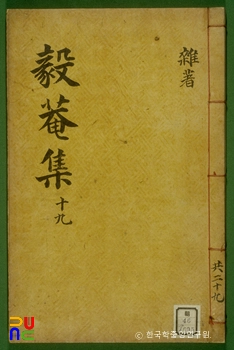 雜著
毅菴集 十九
共二十九
ⓒ 한국학중앙연구원